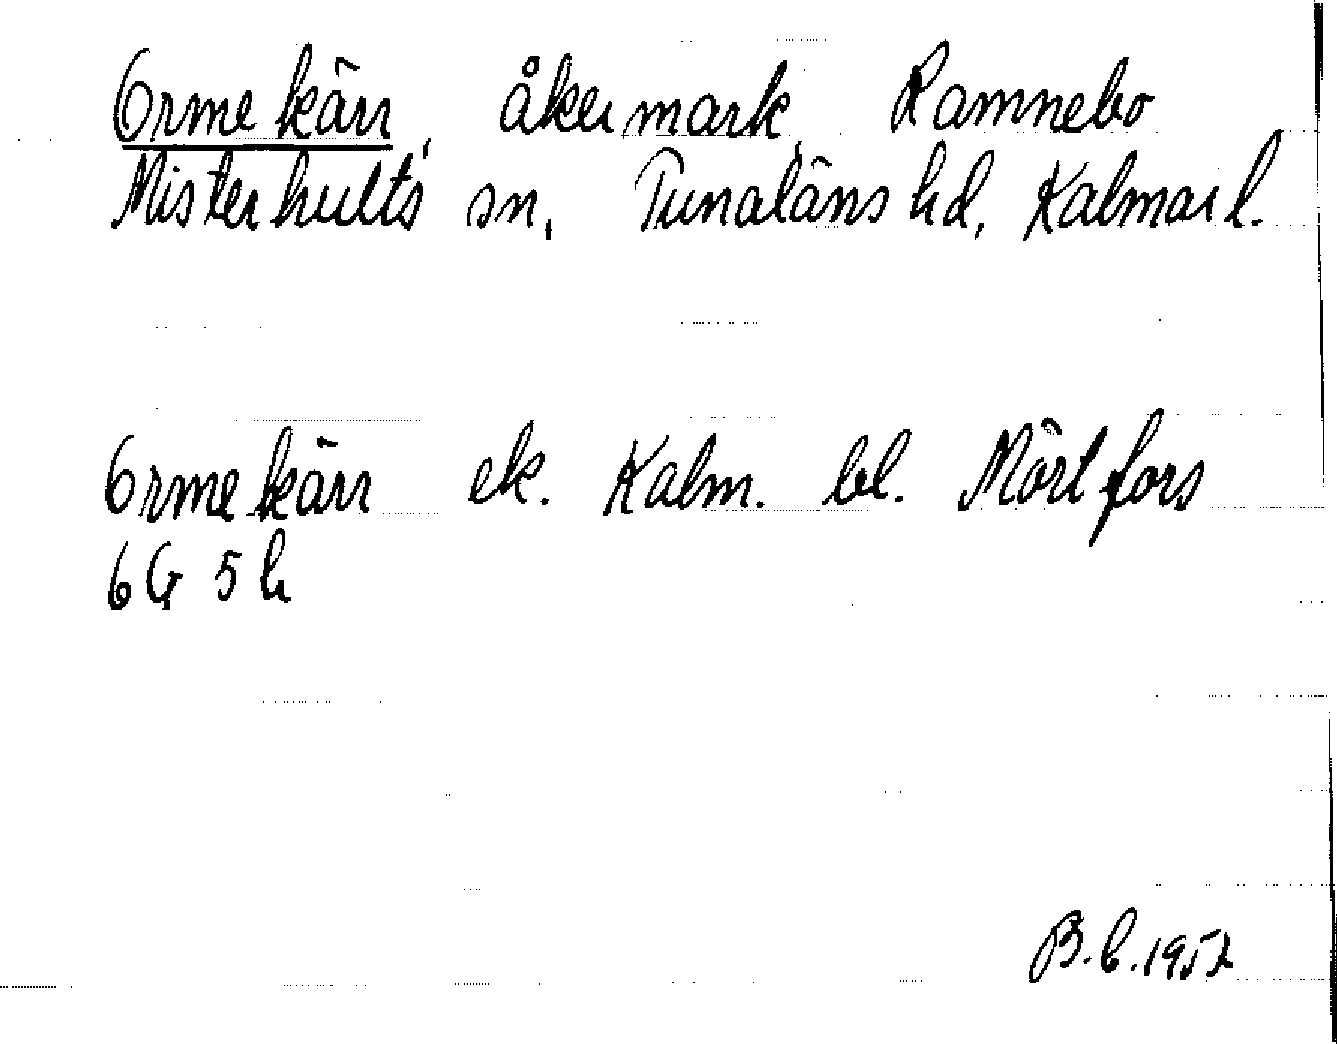 Ormekärr, åkermark, Ramnebo
Misterhults sn, Tunaläns hd, Kalmar l.
Ormekärr ek. Kalm. bl. Mörtfors
6G 5h
B.b. 1952